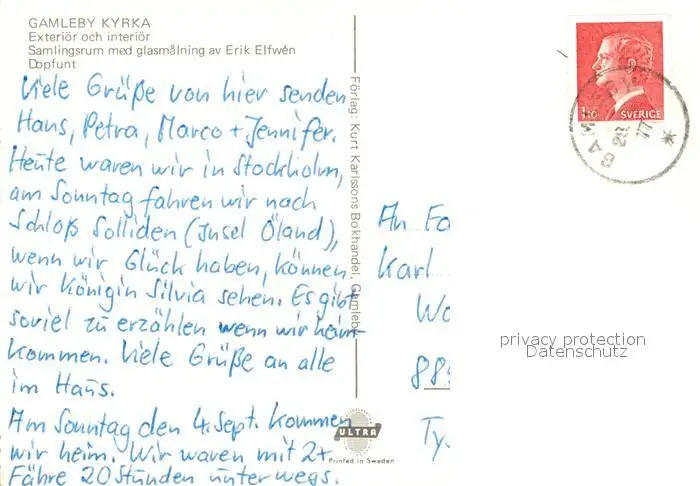 GAMLEBY KYRKA
Exteriör och interiör
Samlingsrum med glasmålning av Erik Elfwén
Dopfunt
Viele Grüße von hier senden
Hans, Petra, Marco + Jennifer.
Heute waren wir in Stockholm,
am Sonntag fahren wir nach
Schloß Solliden (Insel Öland),
wenn wir Glück haben, können
wir Königin Silvia sehen. Es gibt
soviel zu erzählen wenn wir heim
kommen. Viele Grüße an alle
im Haus.
Am Sonntag den 4. Sept. kommen
wir heim. Wir waren mit 2x
Fähre 20 Stunden unterwegs.
Förlag: Kurt Karlssons Bokhandel, Gamleby
ULTRA
Printed in Sweden
1.10
SVERIGE
77
An Fa
Karl
Wo
88
Ty
privacy protection
Datenschutz